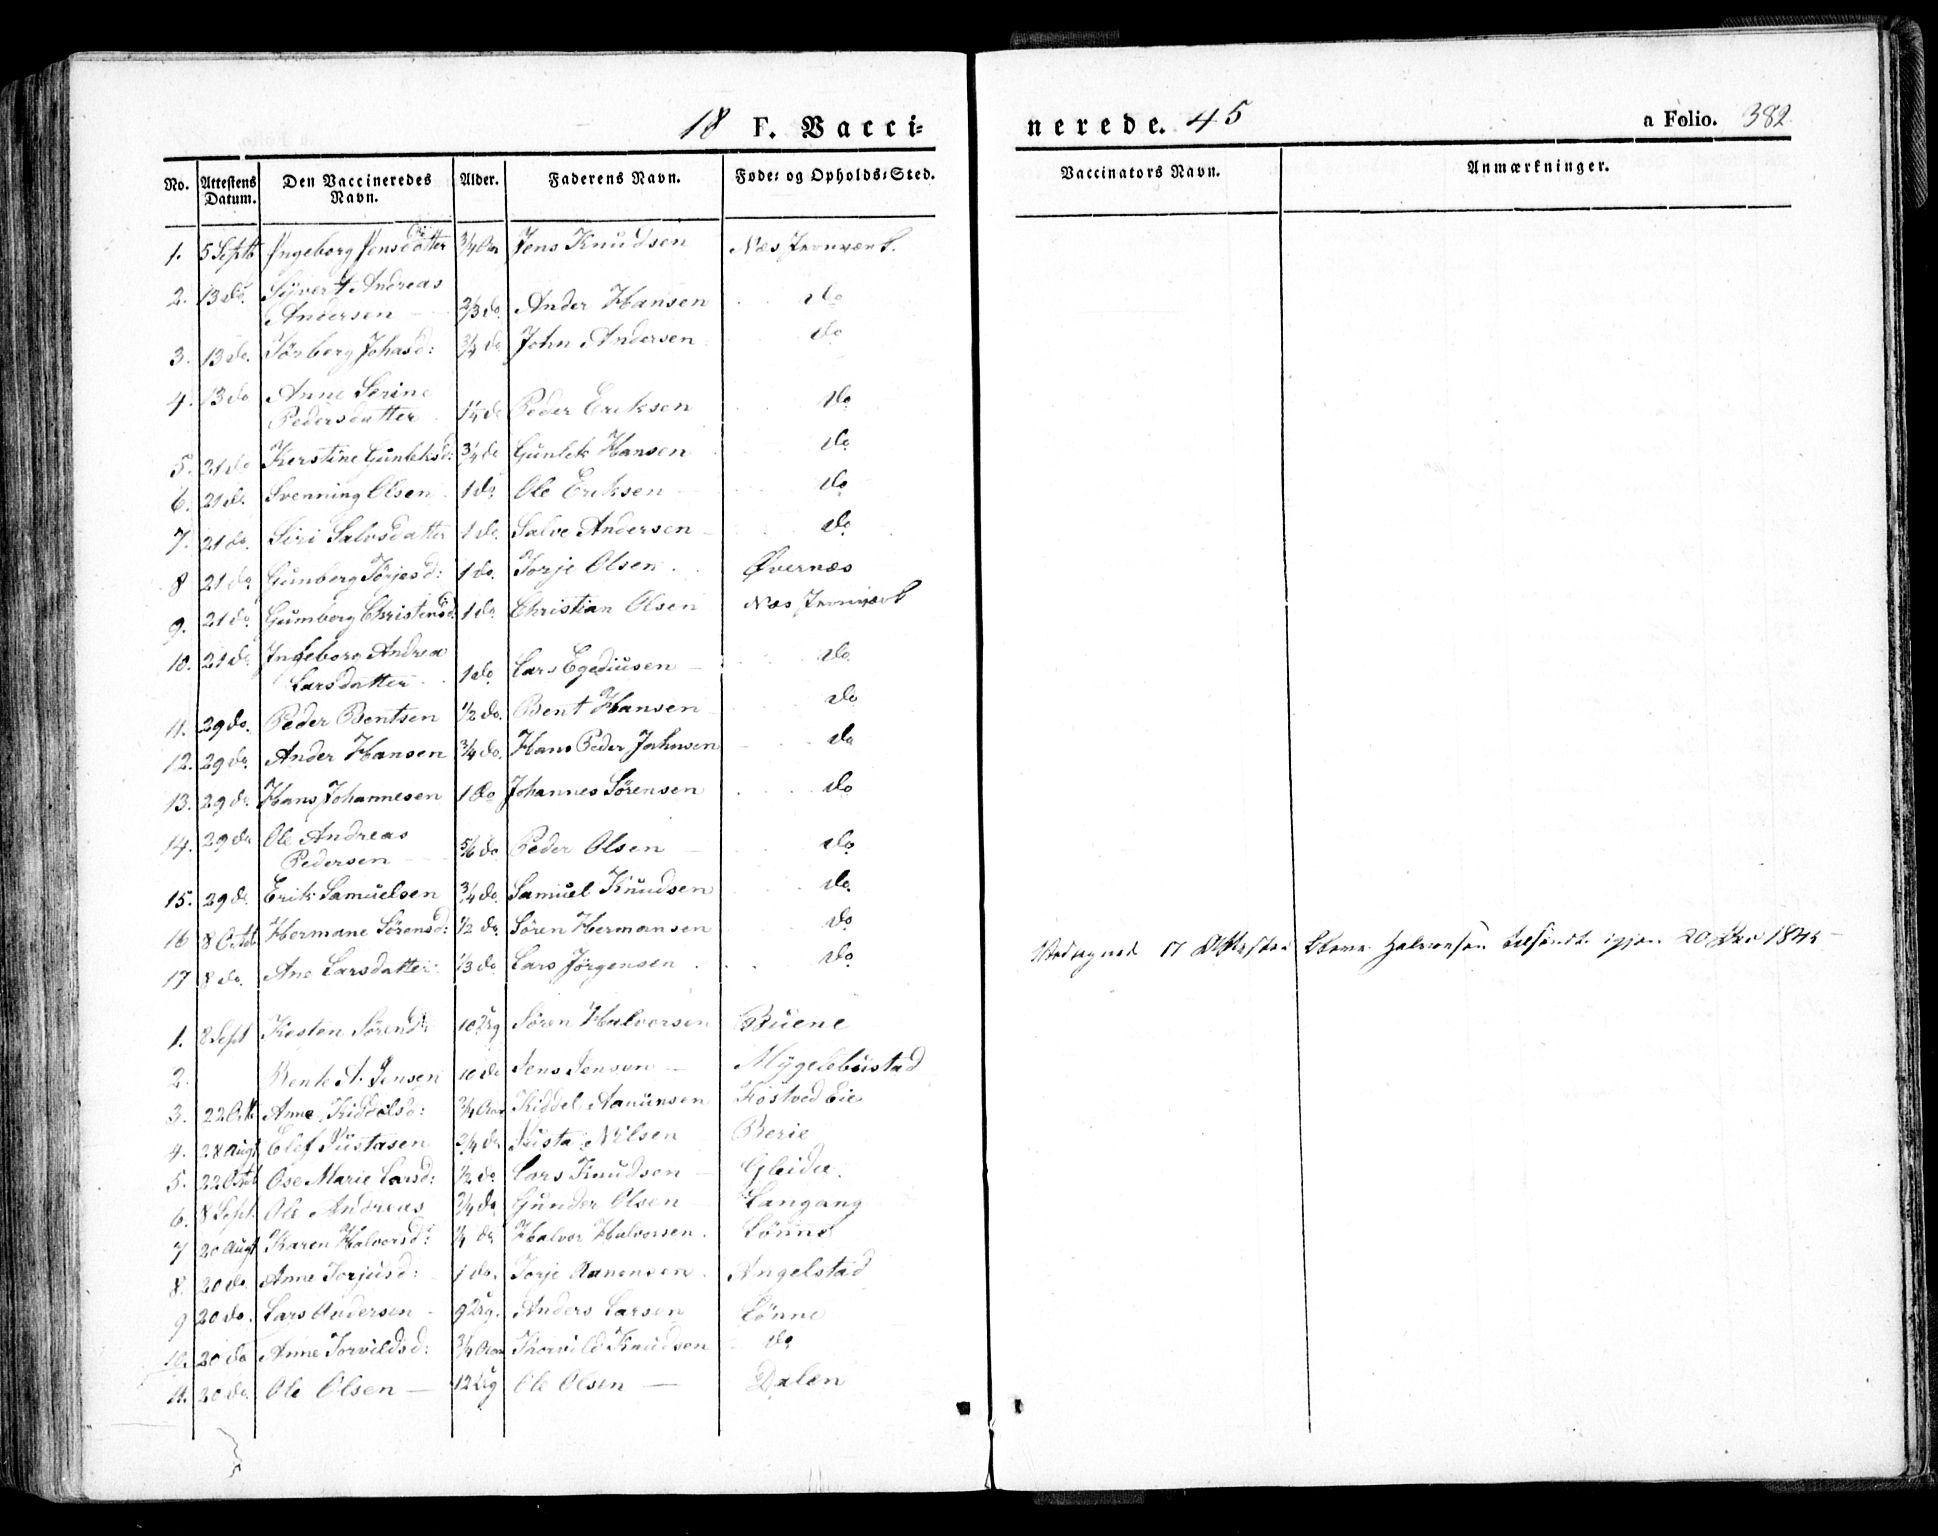 18 F. Vacci-
nerede. 45
a Folio. 382
No. Attestens Datum. Den Vaccineredes Navn. Alder. Faderens Navn. Føde- og Opholds-Sted.
Vaccinators Navn. Anmærkninger.
1. 5 Septb Ingeborg Jensdatter 3/4 Aar Jens Knudsen Næs Jernværk.
2. 13 do. Syvert Andreas
Andersen 2/3 do Ander Hansen do
3. 13 do. Torberg Johasd: 3/4 do John Andersen do
4. 13 do Anne Serine
Pedersdatter 1 1/4 do Peder Eriksen do
5. 21 do Kerstine Gunleksd: 3/4 do Gunlek Hansen do
6. 21 do. Svenning Olsen 1 do Ole Eriksen do
7. 21 do. Siri Salvsdatter 1 do. Salve Andersen do
8 21 do Gunberg Törjesd: 1 do. Torje Olsen Øvernæs
9. 21 do. Gumberg Christensd: 1 do. Christian Olsen Næs Jernværk
10. 21 do Ingeborg Andrea
Larsdatter 1 do Lars Egediusen do
11. 29 do. Peder Bentsen 1/2 do. Bent Hansen do
12. 29 do. Ander Hansen 3/4 do. Hans Peder Johnsen do
13. 29 do Hans Johannesen 1 do Johannes Sörensen do
14. 29 do Ole Andreas
Pedersen 5/6 do Peder Olsen do
15. 29 do. Erik Samuelsen 3/4 do. Samuel Knudsen do.
16 8 Octb Hermane Sörensd: 1/2 do. Sören Hermansen do
17 8 do. Ane Larsdatter 1/3 do Lars Jörgensen do
17 Attester Halvorsen tilsendt igjen 20
1. 8 Sept Kesten Sörensd: 10 Ug Sören Halvorsen Buene
2. Bente A. Jensen 10 do Jens Jensen Myglebustad
3. 22 Octb Anne Kiddelsd: 3/4 Aar Kiddel Aanunsen Fostved Eie
4. 28 Augt Elef Justasen 3/4 do Justa Nilsen Berie
5. 22 Octb Ose Marie Larsd: 1/2 do Lars Knudsen
6. 8 Sept. Ole Andreas 3/4 do Gunder Olsen Langang
7 20 Augt Karen Halvorsd: 1/4 do Halvor Halvorsen. Lönne
8. 20 do. Anne Torjusd: 1 do. Torje Aanensen Angelstad
9 20 do. Lars Andersen 9 Ug. Anders Larsen Lönne
10. 20 do Anne Torvildsd: 3/4 Aar Thorvild Knudsen do
11. 20 do. Ole Olsen 12 Ug Ole Olsen Dalen